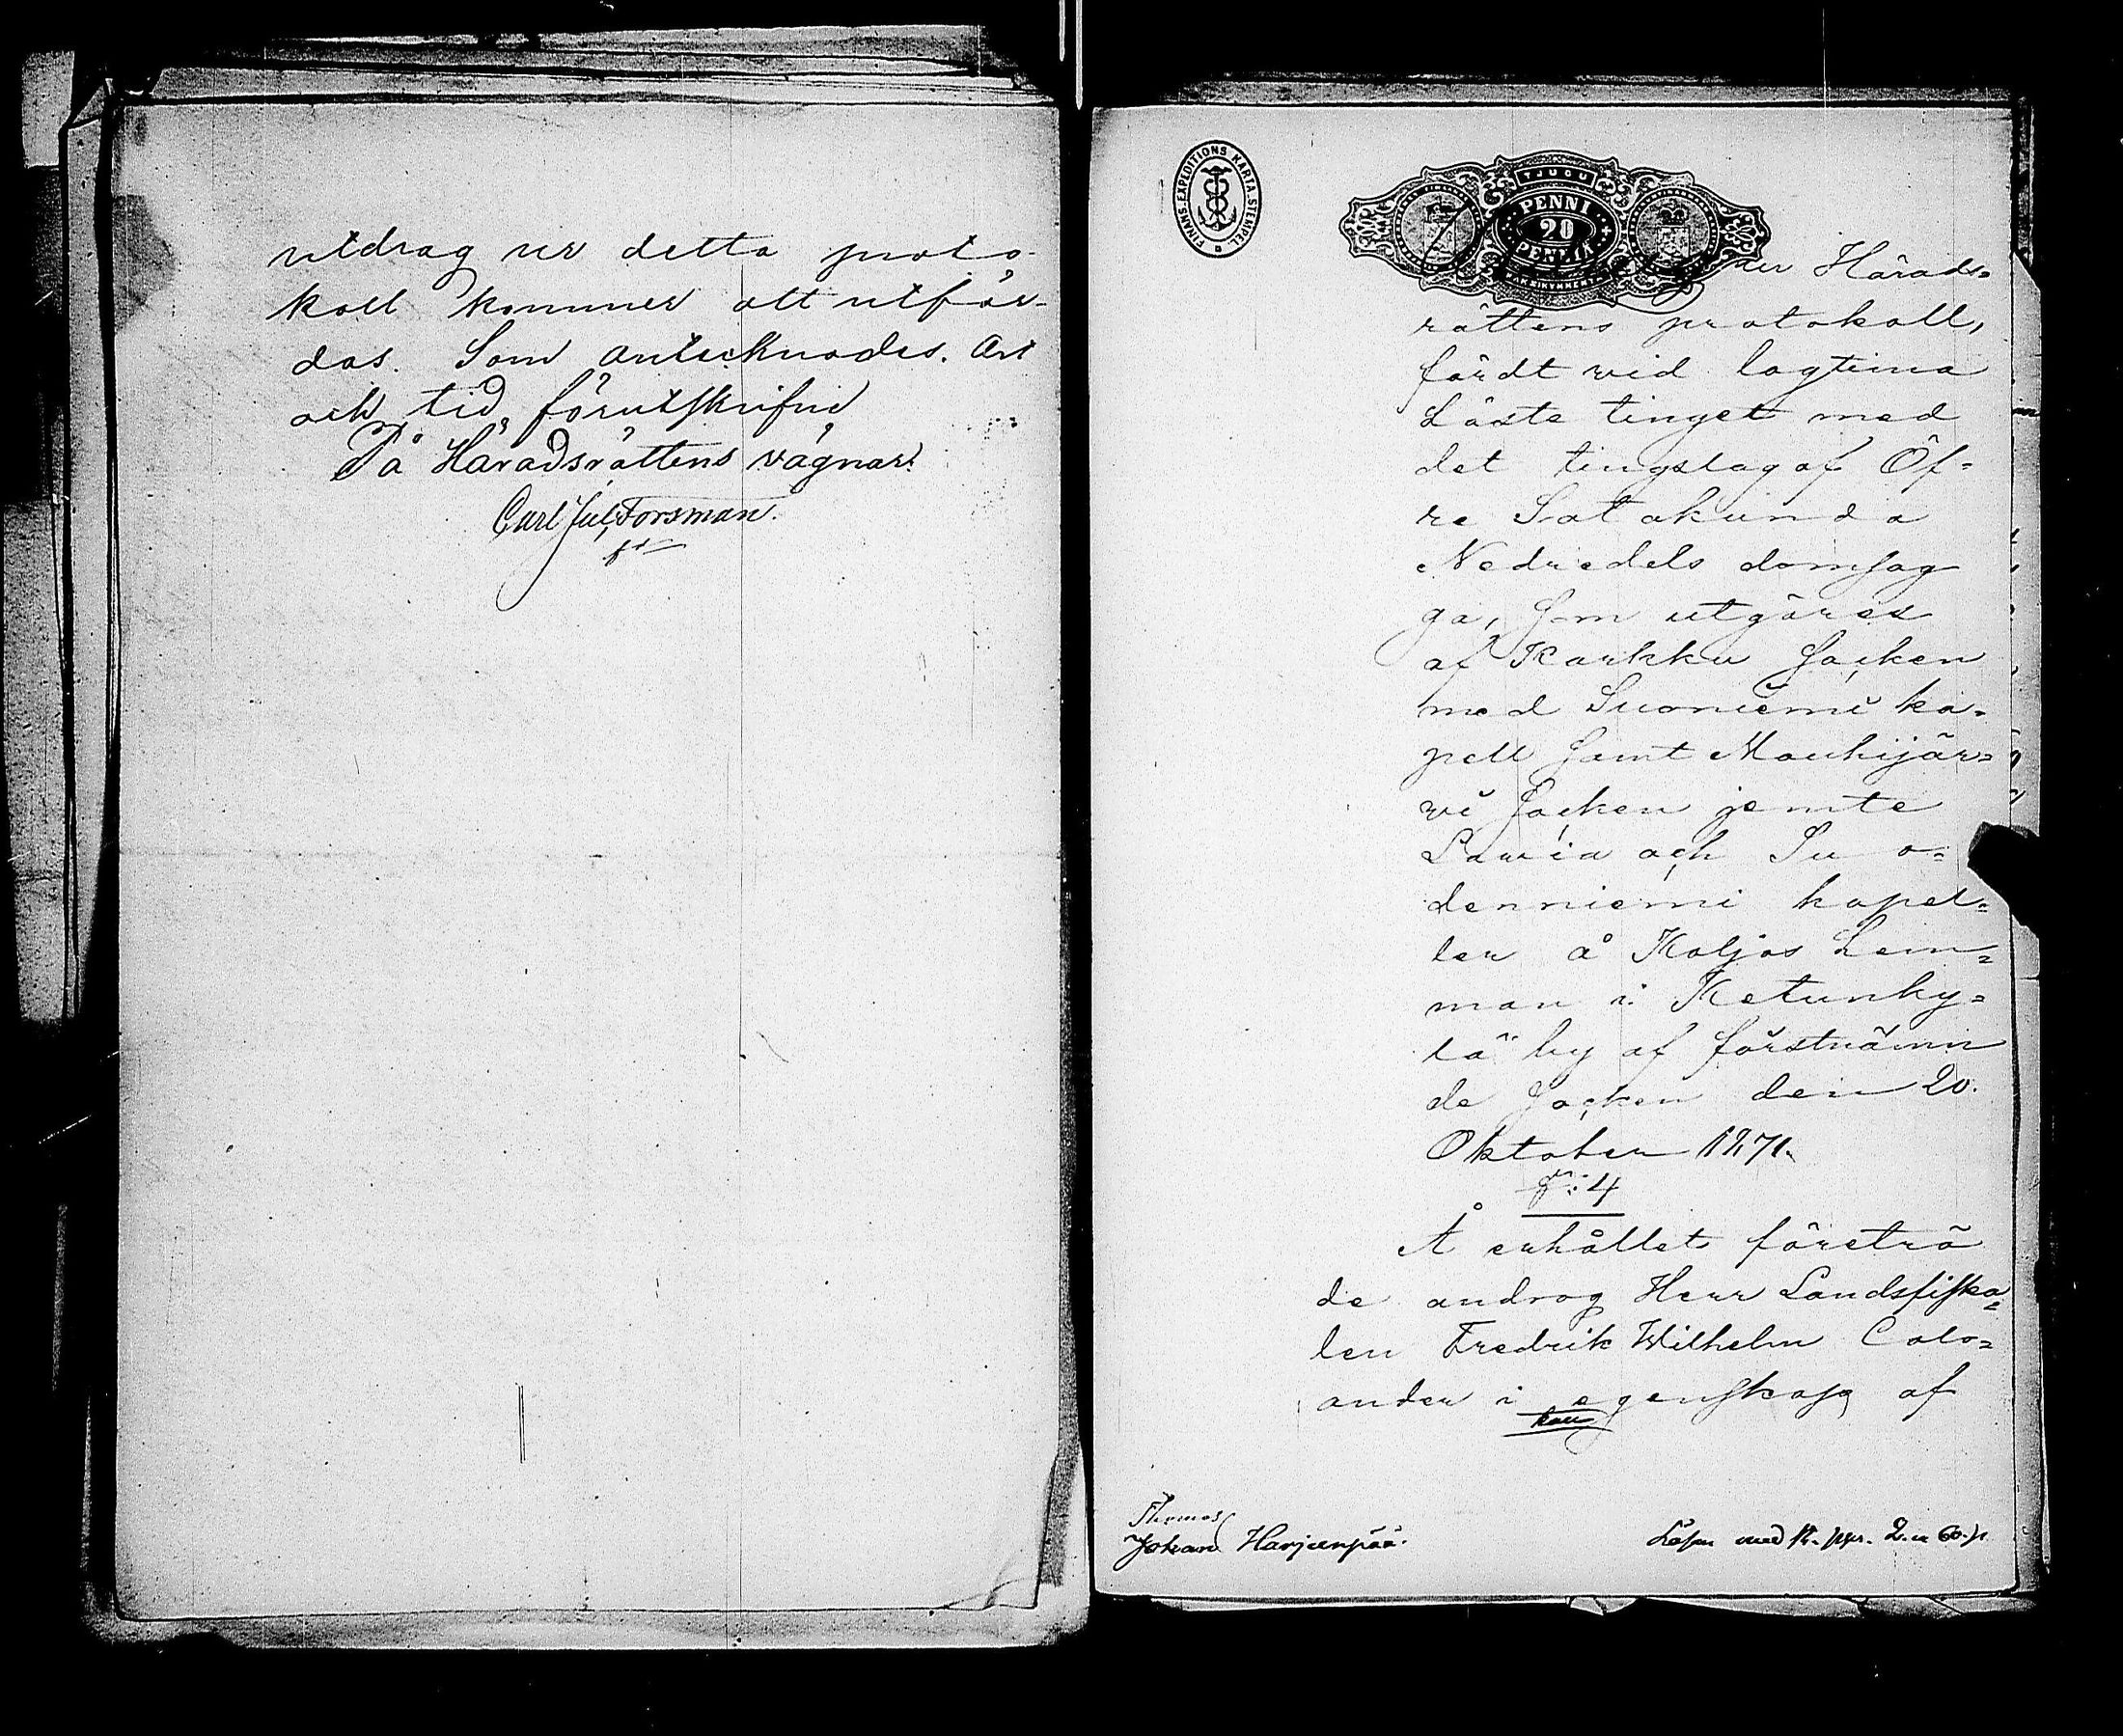 utdrag ur detta proto-
koll kommer att utfär-
das. Som antecknades. Ort
och tid förutskrifne
På Häradsrättens vägnar:
Carl Jul. Forsman.
FINANS-EXPEDITIONS KARTA.STEMPEL.
TJUGU
PENNI
20
PENNIÄ
ur Härads=
rättens protokoll,
fördt vid lagtima
Höste tinget med
det tingslag af Öf=
re Satakunda
Nedredels domsag
ga, som utgöres
af Karkku Socken
med Suoniemi ka=
pell samt Mouhijär=
vi Socken jemte
Lavia och Su o=
denniemi kapel=
ler å Koljos Lem=
man i Ketunky=
lä by af förstnämn
de Socken den 20.
Oktober 1871.
§: 4
Å erhållet företrä
de androg Herr Landsfiska=
len Fredrik Wilhelm Calo=
ander i egenskap af
Thomas
Johan Harjunpää.
Lösen med 12. ppr. 2. m 60. p.